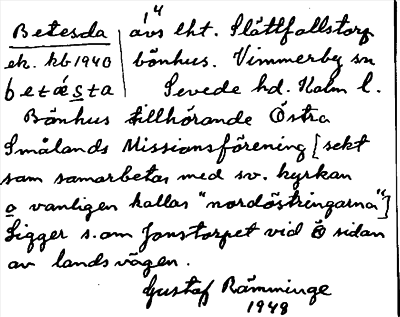 14
Betesda avs lht. Slättfallstorp
ek. kb 1940 bönhus. Vimmerby sn
betésta Sevede hd. Kalm l.
Bönhus tillhörande Östra
Smålands Missionsförening [sekt
som samarbetar med sv. kyrkan
o vanligen kallas "nordöstringarna"]
Ligger s. om Jonstorpet vid Ö sidan
av landsvägen.
Gustaf Rämminge
1948